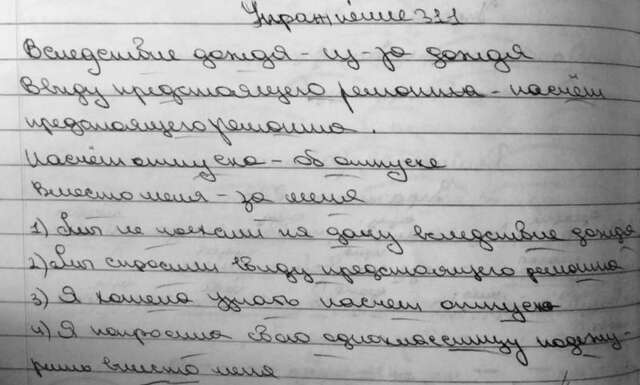 Упражнение 311
Вследствие дождя - из-за дождя
Ввиду предстоящего ремонта - насчёт
предстоящего ремонта.
Насчёт отпуска - об отпуске
Вместо меня - за меня
1) Мы не поехали на дачу вследствие дождя
2) Мы спросили ввиду предстоящего ремонта
3) Я хотела узнать насчет отпуска
4) Я попросила свою одноклассницу подежу-
рить вместо меня